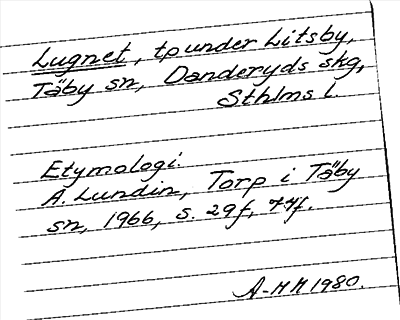 Lugnet, tp under Litsby,
Täby sn, Danderyds skg,
Sthlms l.
Etymologi:
A. Lundin, Torp i Täby
sn, 1966, s. 29f, 74f.
A-MH 1980.